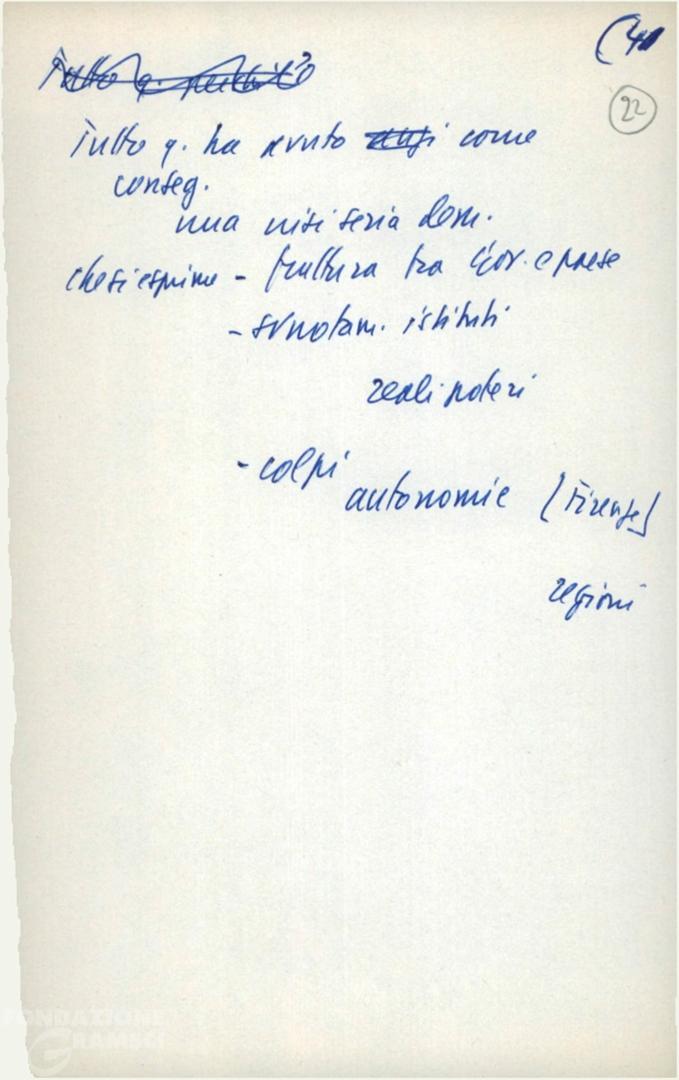 (4
22
Tutto q. perchè
Tutto q. ha avuto come
conseg.
una crisi seria dem.
che si esprime - frattura tra Gov. e paese
- svuotam. istituti
reali poteri
- colpi
autonomie [Firenze]
regioni
FONDAZIONE
GRAMSCI